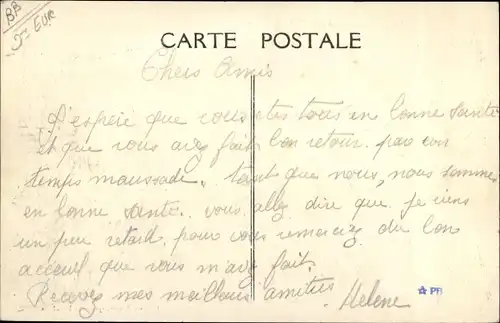 BB
5= EUR
CARTE POSTALE
Chers Amis
J'espère que vous etes tous en bonne santé
et que vous avez fait bon retour par ce
temps maussade. tant que nous, nous sommes
en bonne santé. vous allez dire que je viens
un peu retard pour vous remerciez du bon
acceuil que vous m'avez fait.
Recevez mes meilleurs amitiés Helene
PB